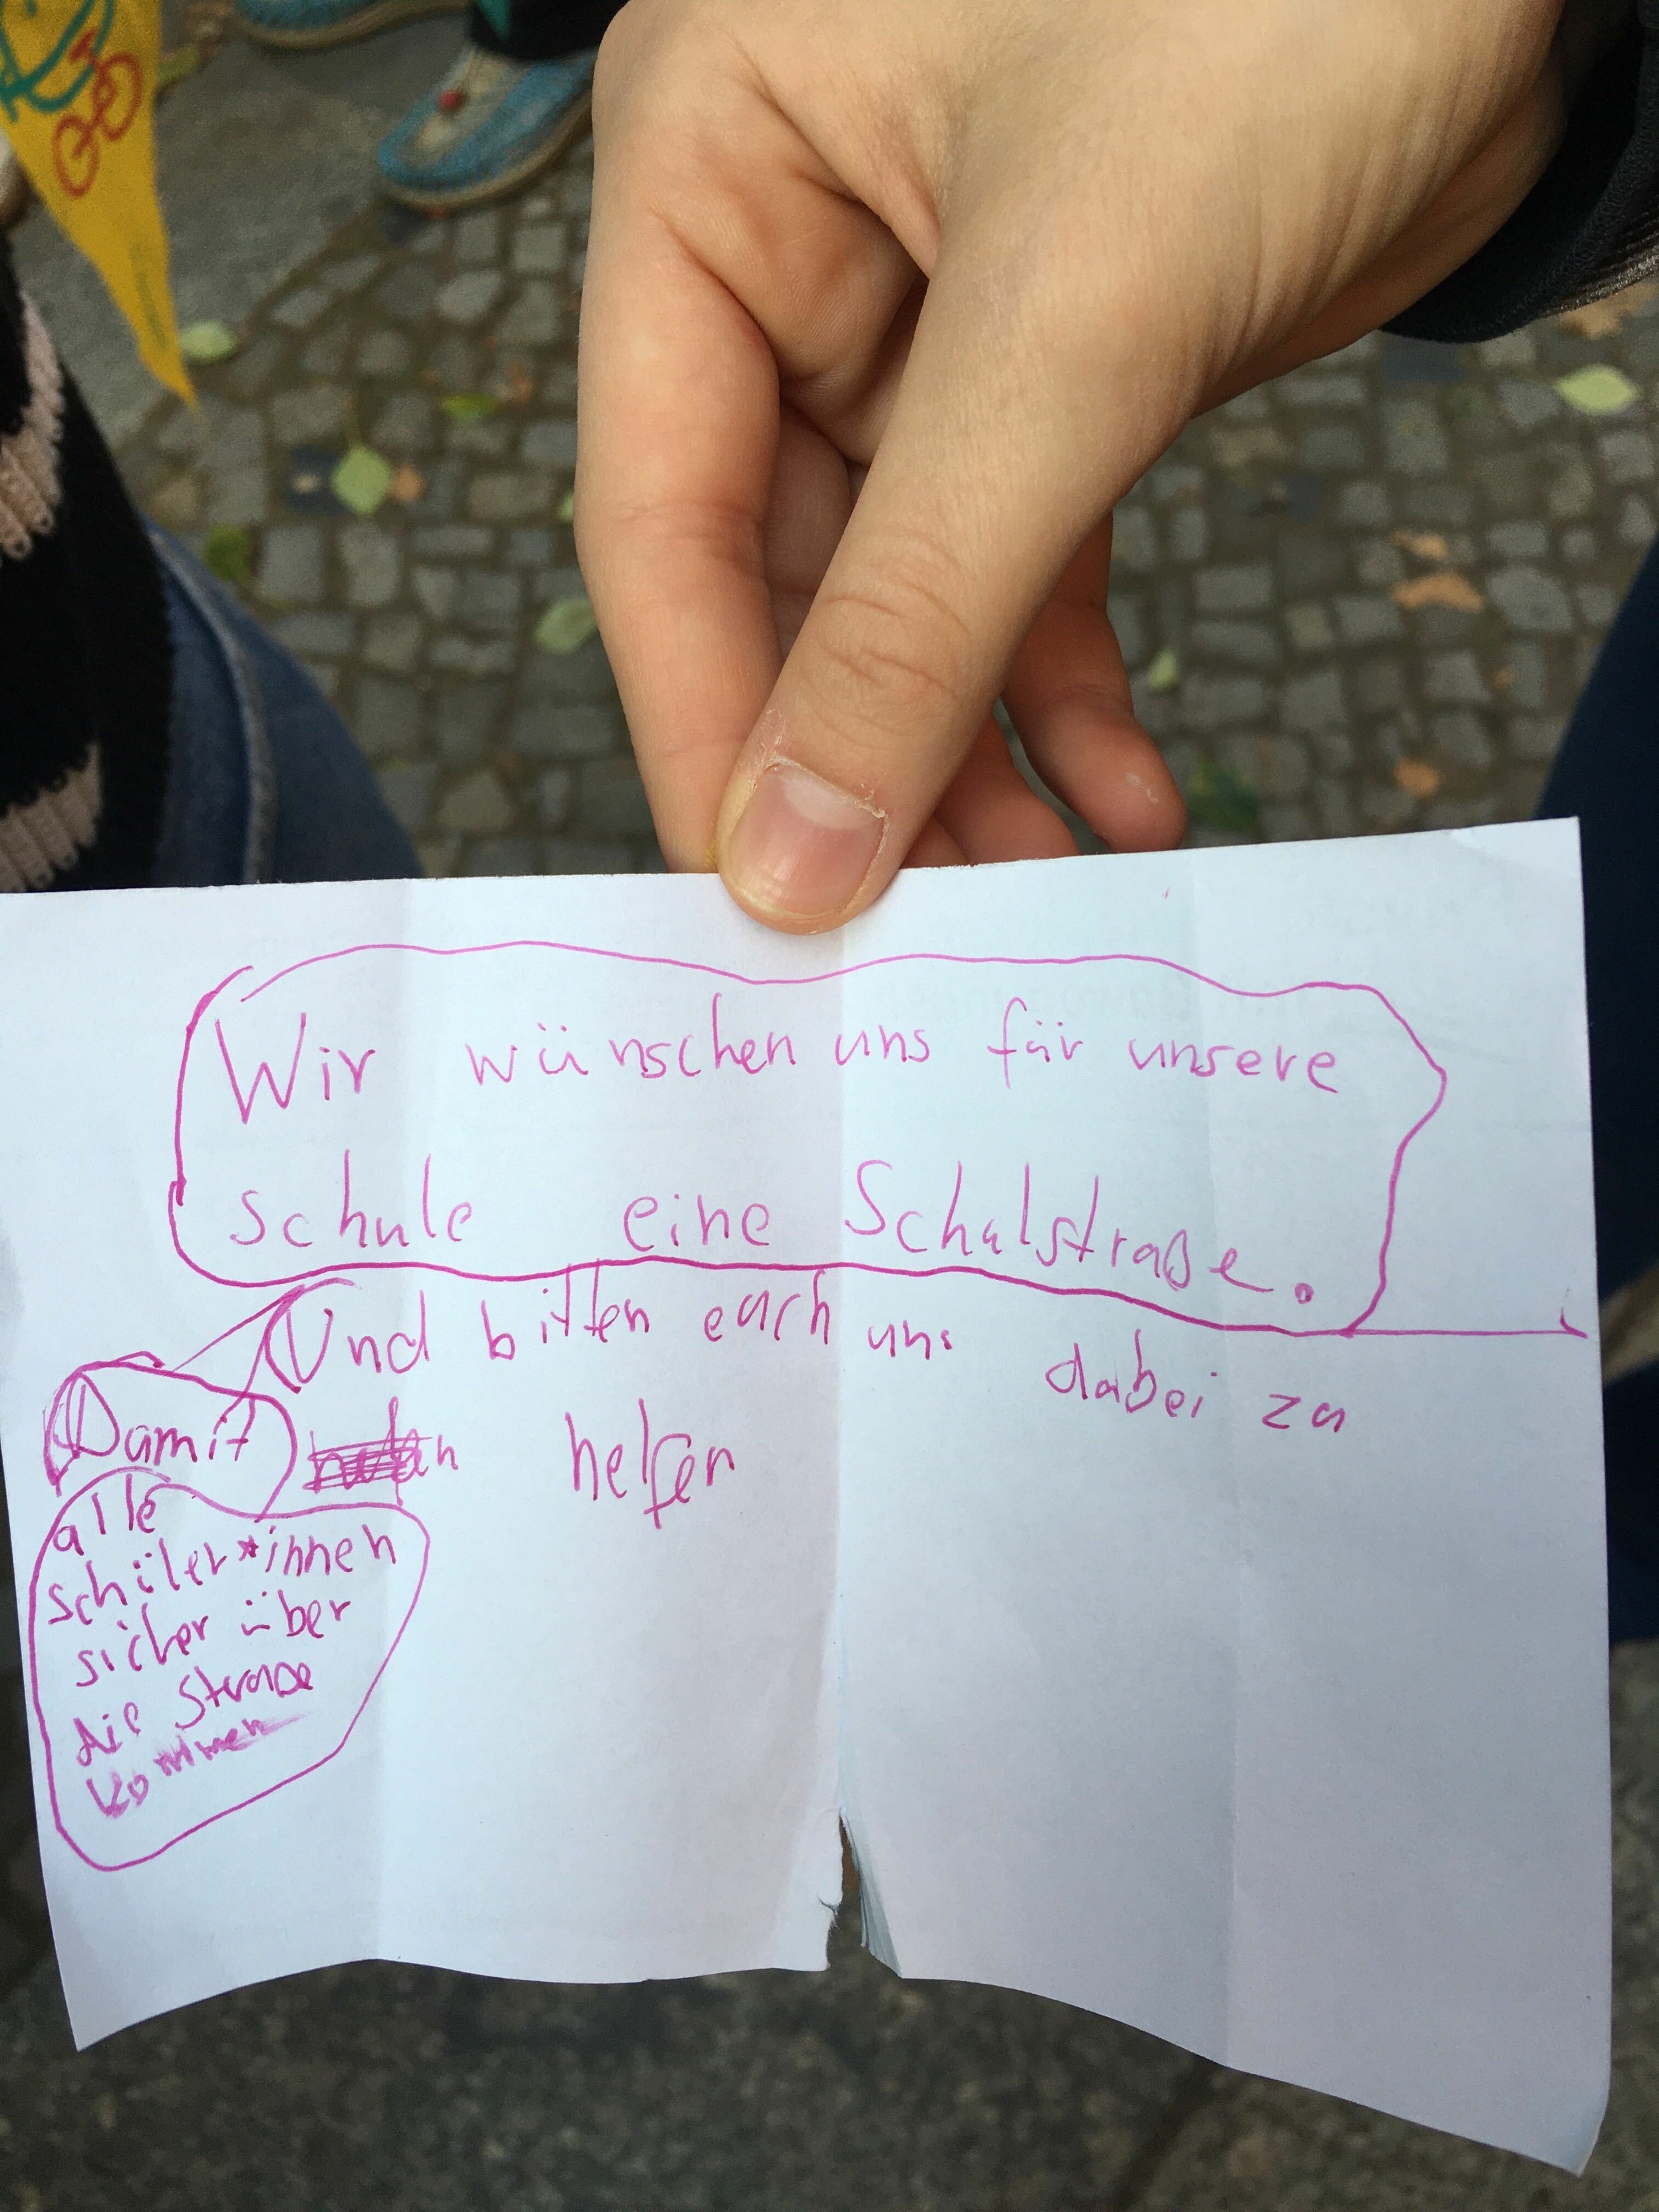 Wir wünschen uns für unsere
schule eine Schulstraße.
Und bitten euch uns dabei zu
helfen
Damit
alle
schüler*innen
sicher über
die Straße
kommen